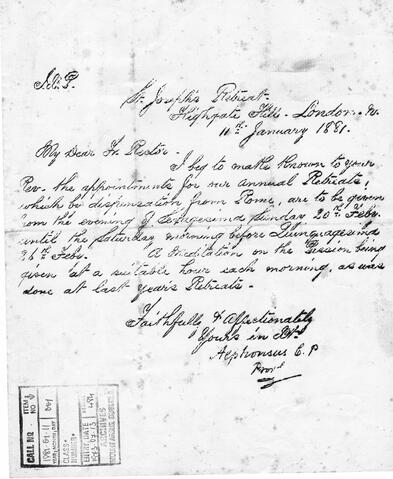 St. Joseph's Retreat
Highgate Hill - London. N.
11th January 1881.
My Dear Fr. Rector -
I beg to make known to your
Rev. the appointments for our annual Retreats,
which by dispensation from Rome, are to be given
from the evening of Sexagesima Sunday 20th Feby.
until the Saturday morning before Quinquagesima
26th Feby. A Meditation on the Passion being
given at a suitable hour each morning, as was
done at last year's Retreats -
Faithfully & Affectionately
Yours in
Alphonsus C. P
Provl
CALL NO.
ITEM NO
1881-01-11
YEAR, MONTH, DAY
CLASS.
NUMBER
ENTRY DATE
ARCHIVES